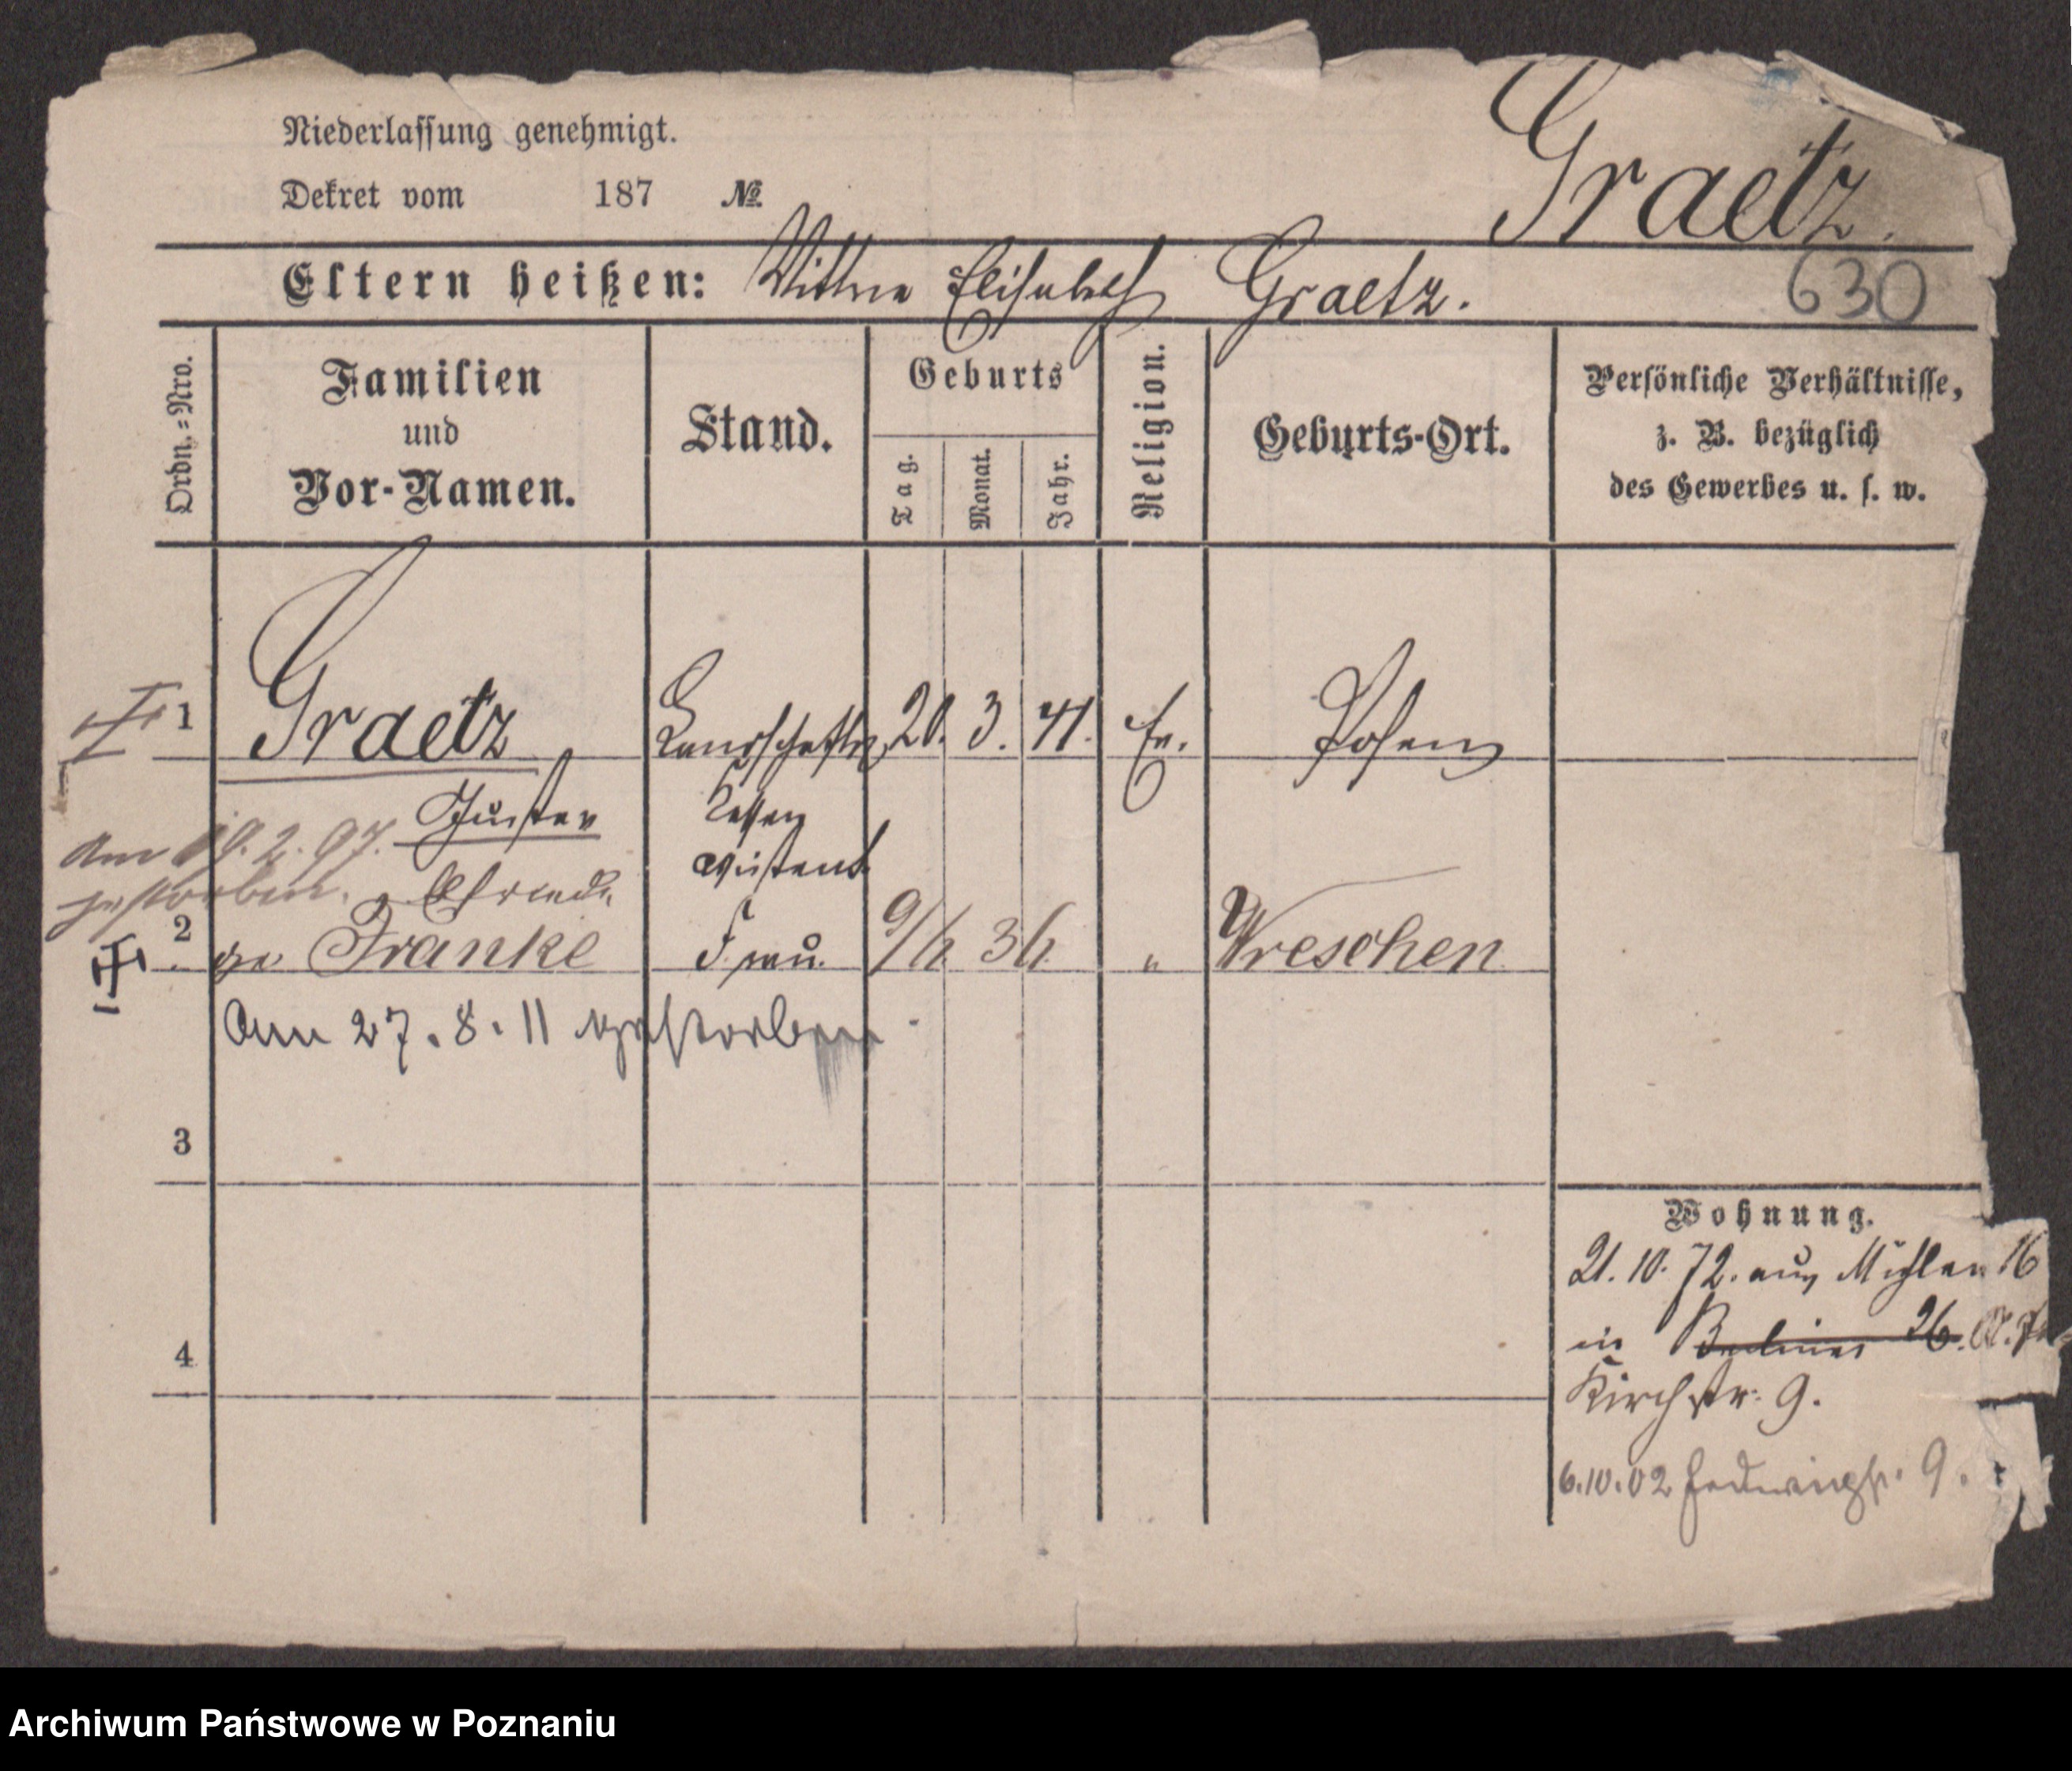 Niederlassung genehmigt.
Dekret vom 187 №
Graetz.
Eltern heißen: Wittwe Elisabeth Graetz.
630
Ordn.-Nro.
Familien
und
Vor-Namen.
Stand.
Geburts
Tag.
Monat.
Jahr.
Religion.
Geburts-Ort.
Persönliche Verhältnisse,
z. B. bezüglich
des Gewerbes u. s. w.
1 Graetz Landschafts 20. 3. 41. Ev. Posen
Gustav Kassen
Am 19.2.97. Assistent
gestorben.
2 Franke Frau 9/6 36 " Wreschen
Am 27.8.11 gestorben.
3
4
Wohnung.
21.10.72. aus Mühlen 16
in Berliner 26.
Kirchstr. 9.
6.10.02 Hedwigstr. 9.
Archiwum Państwowe w Poznaniu